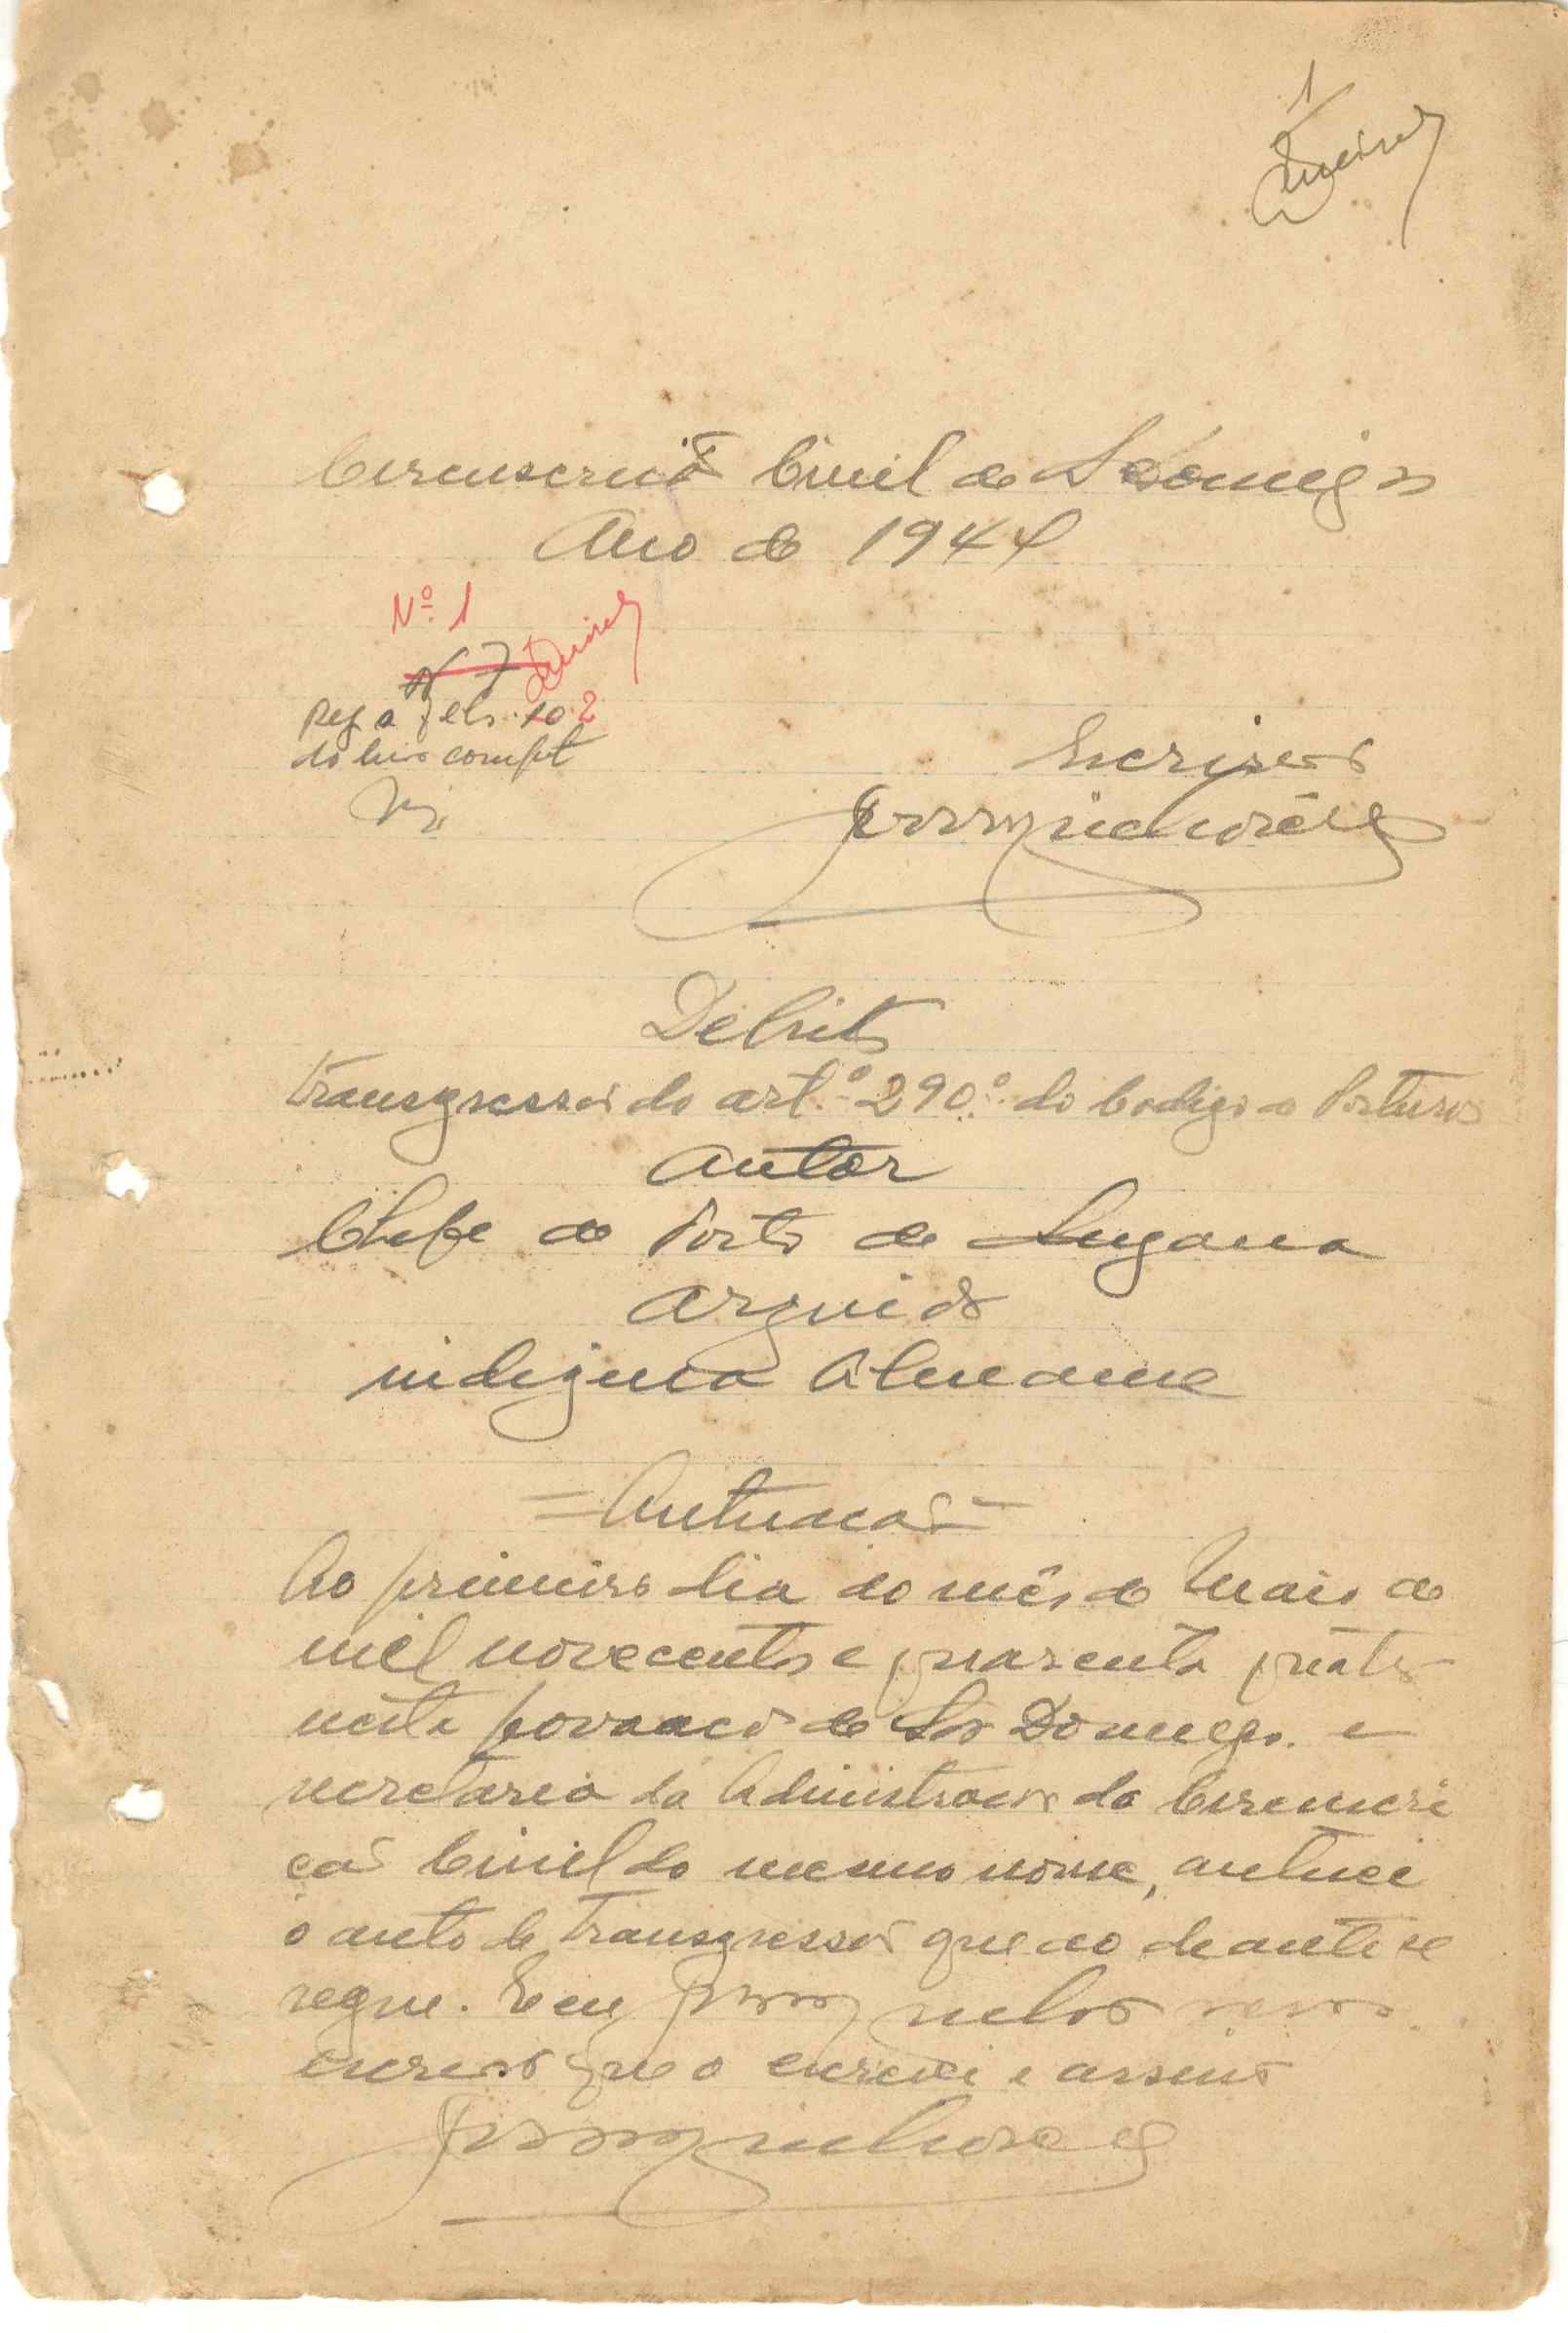 1
Circunscrição Civil de S. Domingos
Ano de 1944
Nº 1
Nº 7
Reg a fels. 10 2
do livro compet
Escrivão
Delito
Transgressão do artº 290.º do Codigo de Posturas
Autor
Chefe do Posto de
Arguido
indigena
= Autuacão =
Ao primeiro dia do mês de Maio de
mil novecentos e quarenta quatro
nesta povoacão de São Domigos e
secretaria da Administracão da Circuncri
cão Civil do mesmo nome, autuei
o auto de transgressão que ao deante se
segue. E eu
escrivão que o escrevi e assino